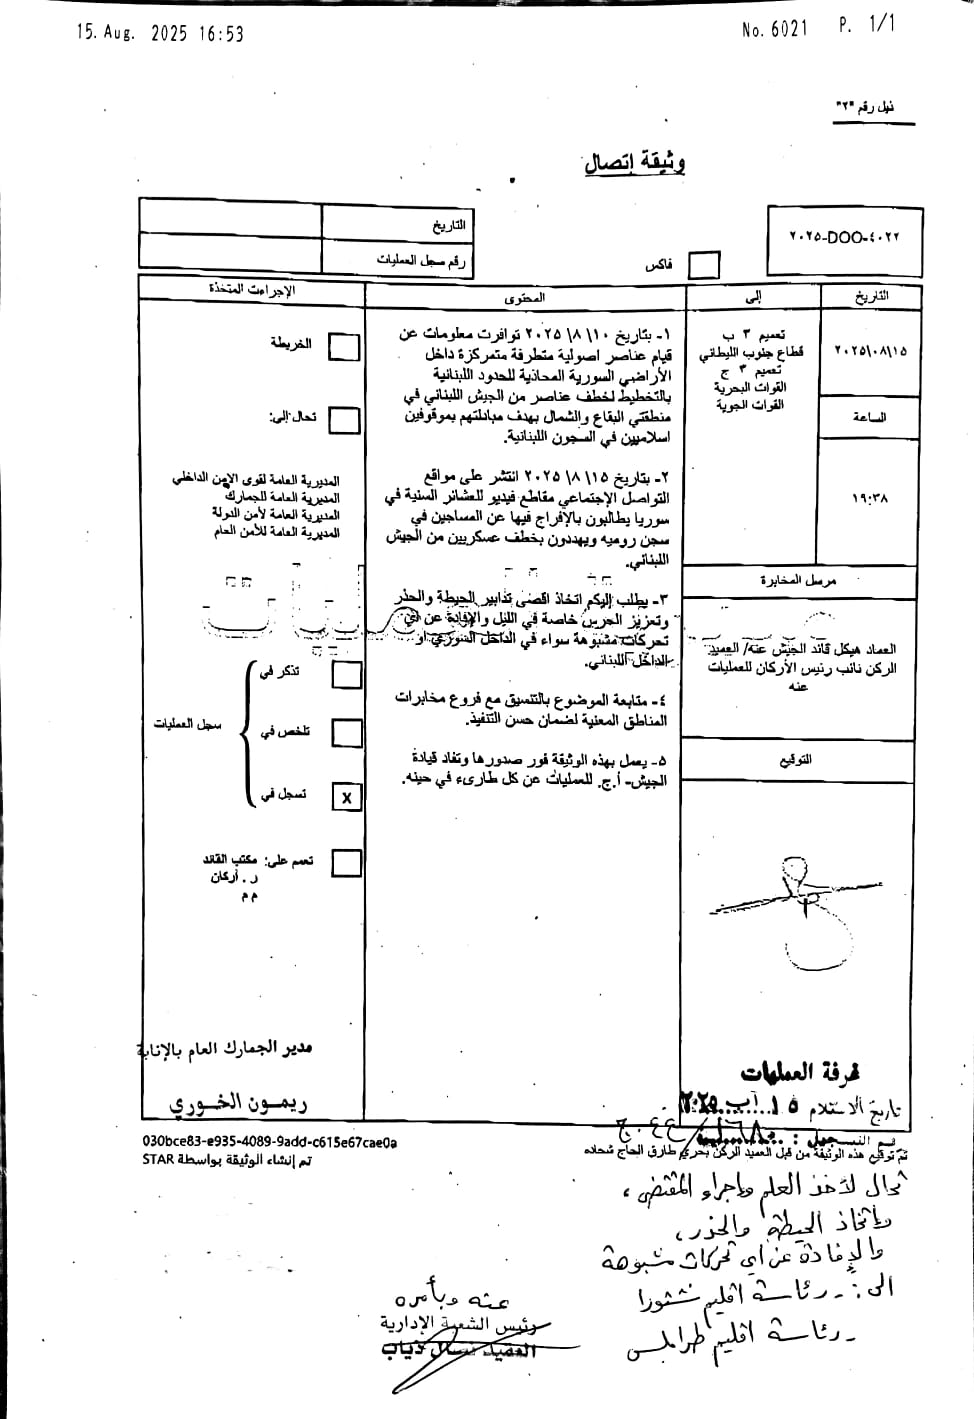 15. Aug. 2025 16:53
No. 6021 P. 1/1
ذيل رقم "٢"
وثيقة إتصال
التاريخ
رقم سجل العمليات
فاكس
٢٠٢٥-DOO-٤٠٢٢
التاريخ
إلى
المحتوى
الإجراءت المتخذة
٢٠٢٥\٠٨\١٥
الساعة
١٩:٣٨
تعميم ٣ ب
قطاع جنوب الليطاني
تعميم ٣ ج
القوات البحرية
القوات الجوية
١- بتاريخ ١٠ \٨ \٢٠٢٥ توافرت معلومات عن
قيام عناصر اصولية متطرفة متمركزة داخل
الأراضي السورية المحاذية للحدود اللبنانية
بالتخطيط لخطف عناصر من الجيش اللبناني في
منطقتي البقاع والشمال بهدف مبادلتهم بموقوفين
اسلاميين في السجون اللبنانية.
٢- بتاريخ ١٥ \٨ \٢٠٢٥ انتشر على مواقع
التواصل الإجتماعي مقاطع فيديو للعشائر السنية في
سوريا يطالبون بالإفراج فيها عن المساجين في
سجن روميه ويهددون بخطف عسكريين من الجيش
اللبناني.
٣- يطلب إليكم اتخاذ اقصى تدابير الحيطة والحذر
وتعزيز الحرس خاصة في الليل والإفادة عن أي
تحركات مشبوهة سواء في الداخل السوري او
الداخل اللبناني.
٤- متابعة الموضوع بالتنسيق مع فروع مخابرات
المناطق المعنية لضمان حسن التنفيذ.
٥- يعمل بهذه الوثيقة فور صدورها وتفاد قيادة
الجيش- أ.ج. للعمليات عن كل طارىء في حينه.
الخريطة
تحال إلى:
المديرية العامة لقوى الأمن الداخلي
المديرية العامة للجمارك
المديرية العامة لأمن الدولة
المديرية العامة للأمن العام
تذكر في
سجل العمليات
تلخص في
تسجل في
X
تعمم على: مكتب القائد
ر. أركان
م م
مرسل المخابرة
العماد هيكل قائد الجيش عنه/ العميد
الركن نائب رئيس الأركان للعمليات
عنه
التوقيع
مدير الجمارك العام بالإنابة
ريمون الخوري
غرفة العمليات
تاريخ الاستلام ١٥ آب ٢٠٢٥
رقم التسجيل :
تم توقيع هذه الوثيقة من قبل العميد الركن بحري طارق الحاج شحاده
030bce83-e935-4089-9add-c615e67cae0a
تم إنشاء الوثيقة بواسطة STAR
تحال لأخذ العلم وإجراء المقتضى،
واتخاذ الحيطة والحذر،
والإفادة عن أي تحركات مشبوهة
الى: - رئاسة اقليم شتورا
- رئاسة اقليم طرابلس
عنه وبأمره
رئيس الشعبة الإدارية
العقيد نضال دياب